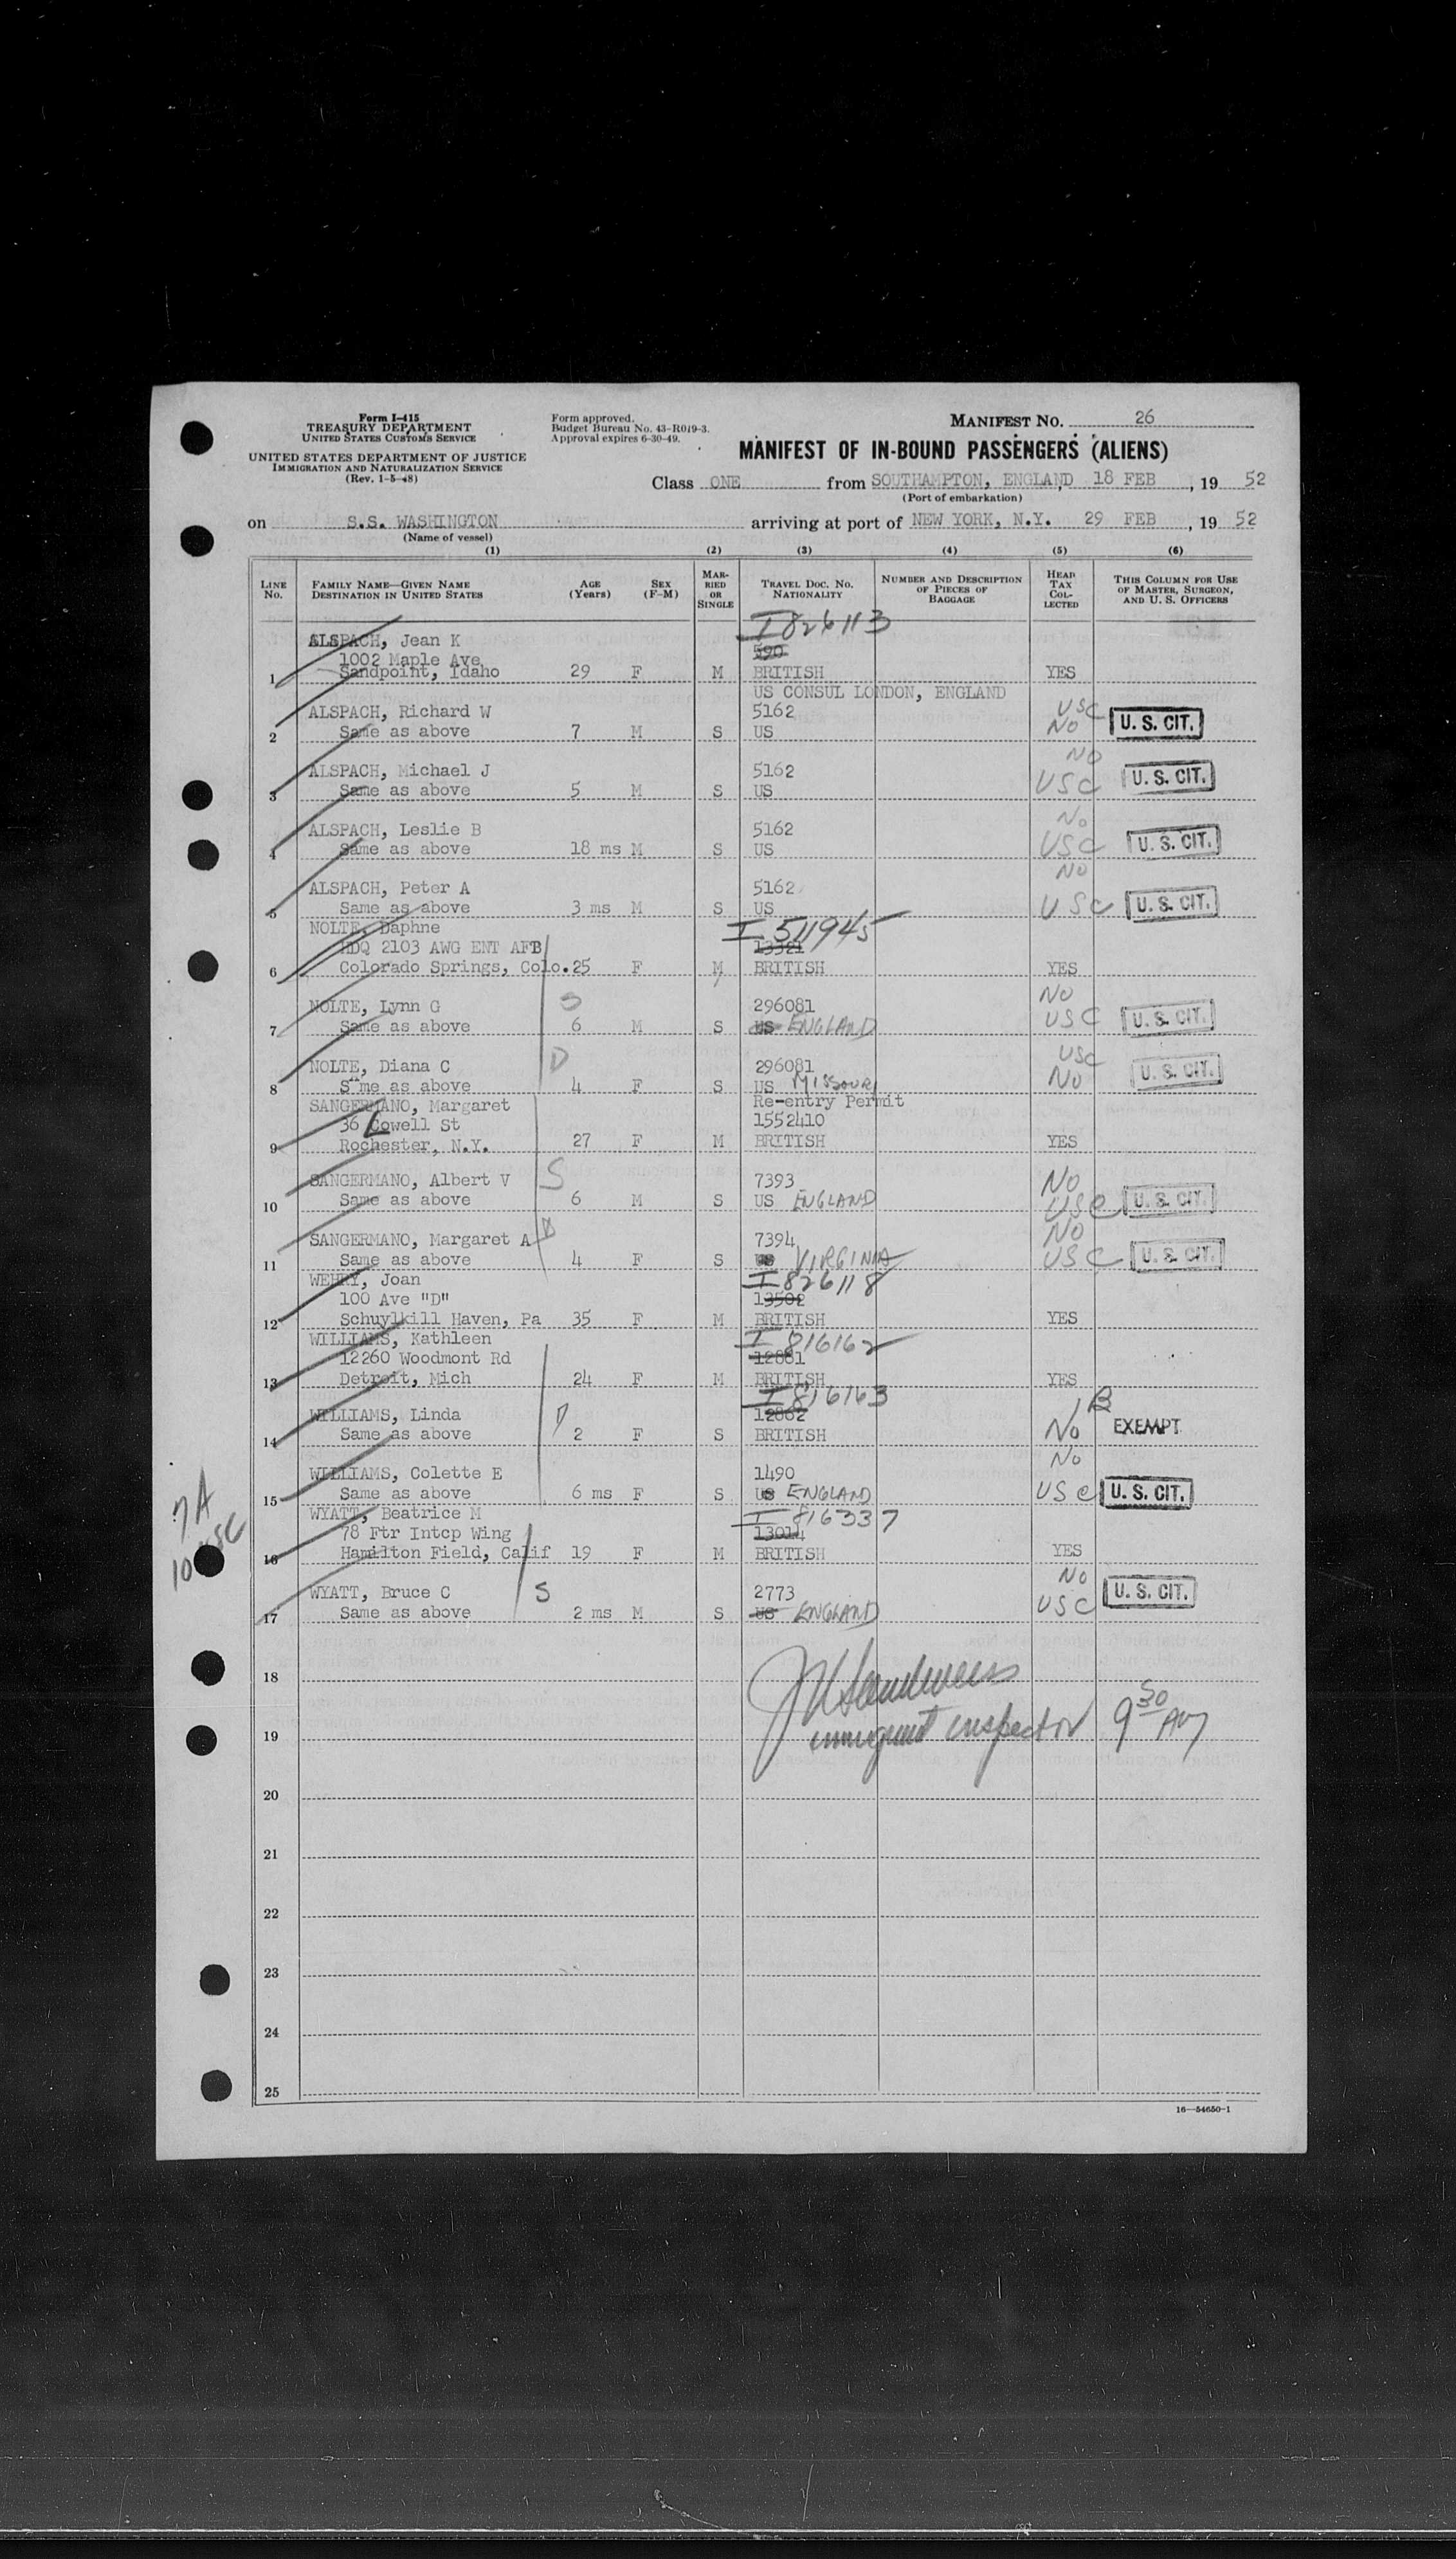 Form I-415
TREASURY DEPARTMENT
UNITED STATES CUSTOMS SERVICE
UNITED STATES DEPARTMENT OF JUSTICE
IMMIGRATION AND NATURALIZATION SERVICE
(Rev. 1-5-48)
Form approved.
Budget Bureau No. 43-R019-3.
Approval expires 6-30-49.
MANIFEST NO. 26
MANIFEST OF IN-BOUND PASSENGERS (ALIENS)
Class ONE from SOUTHAMPTON, ENGLAND, 18 FEB, 19 52
(Port of embarkation)
on S.S. WASHINGTON arriving at port of NEW YORK, N.Y. 29 FEB, 19 52
(Name of vessel)
(1) (2) (3) (4) (5) (6)
LINE NO. FAMILY NAME—GIVEN NAME DESTINATION IN UNITED STATES AGE (Years) SEX (F-M) MARRIED OR SINGLE TRAVEL DOC. NO. NATIONALITY NUMBER AND DESCRIPTION OF PIECES OF BAGGAGE HEAD TAX COLLECTED THIS COLUMN FOR USE OF MASTER, SURGEON, AND U. S. OFFICERS
I 826113
ALSPACH, Jean K 590
1002 Maple Ave
1 Sandpoint, Idaho 29 F M BRITISH YES
US CONSUL LONDON, ENGLAND
ALSPACH, Richard W 5162 USC
2 Same as above 7 M S US NO U. S. CIT.
ALSPACH, Michael J 5162 NO
3 Same as above 5 M S US USC U. S. CIT.
ALSPACH, Leslie B 5162 No
4 Same as above 18 ms M S US USC U. S. CIT.
ALSPACH, Peter A 5162 NO
5 Same as above 3 ms M S US USC U. S. CIT.
NOLTE, Daphne I 511945
HDQ 2103 AWG ENT AFB 13321
6 Colorado Springs, Colo. 25 F M BRITISH YES
NOLTE, Lynn G S 296081 NO
7 Same as above 6 M S US ENGLAND USC U. S. CIT.
NOLTE, Diana C D 296081 USC
8 S me as above 4 F S US MISSOURI NO U. S. CIT.
SANGERMANO, Margaret Re-entry Permit
36 Lowell St 1552410
9 Rochester, N.Y. 27 F M BRITISH YES
SANGERMANO, Albert V S 7393 NO
10 Same as above 6 M S US ENGLAND USC U. S. CIT.
SANGERMANO, Margaret A D 7394 NO
11 Same as above 4 F S US VIRGINIA USC U. S. CIT.
WEHRY, Joan I 826118
100 Ave "D" 13502
12 Schuylkill Haven, Pa 35 F M BRITISH YES
WILLIAMS, Kathleen I 816162
12260 Woodmont Rd 12881
13 Detroit, Mich 24 F M BRITISH YES
I 816163
WILLIAMS, Linda D 12882
14 Same as above 2 F S BRITISH No EXEMPT
WILLIAMS, Colette E 1490 No
15 Same as above 6 ms F S US ENGLAND USC U. S. CIT.
WYATT, Beatrice M I 816337
78 Ftr Intcp Wing 13014
16 Hamilton Field, Calif 19 F M BRITISH YES
WYATT, Bruce C S 2773 NO
17 Same as above 2 ms M S US ENGLAND USC U. S. CIT.
7A
10 USC
18
19 immigrant inspector 9 30 AM
20
21
22
23
24
25
16—54650-1